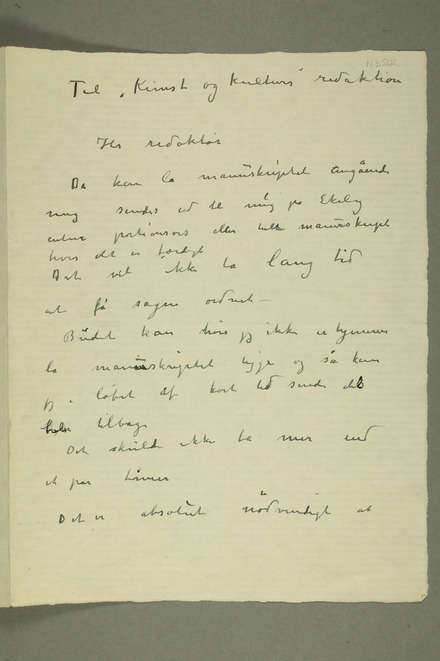 N 3502
Til „Kunst og kulturs" redaktion
Hr redaktör
De kan la manuskriptet angående
mig sendes ud til mig på Ekely
enten portionsvis eller hele manuskriptet
hvis det er færdigt
Det vil ikke ta lang tid
at få sagen ordnet –
Budet kan hvis jeg ikke er hjemme
la manuskriptet ligge og så kan
jeg i løbet af kort tid sende det
hele tilbage
Det skulde ikke ta mer end
et par timer
Det er absolut nödvendigt at